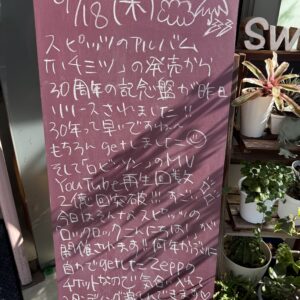 9/18(木)
スピッツのアルバム
ハチミツ」の発売から
30周年の記念盤が昨日
リリースされました!!
30年って早いですねー
もちろんgetしました
そして「ロビンソン」のMV
YouTube再生回数
2億回突破!!! すごい
今日はそんなスピッツの
ロックロックこんにちは!が
開催されます!! 何年かぶりに
自力でgetしたZeppの
チケットなので気合い入れて
SW